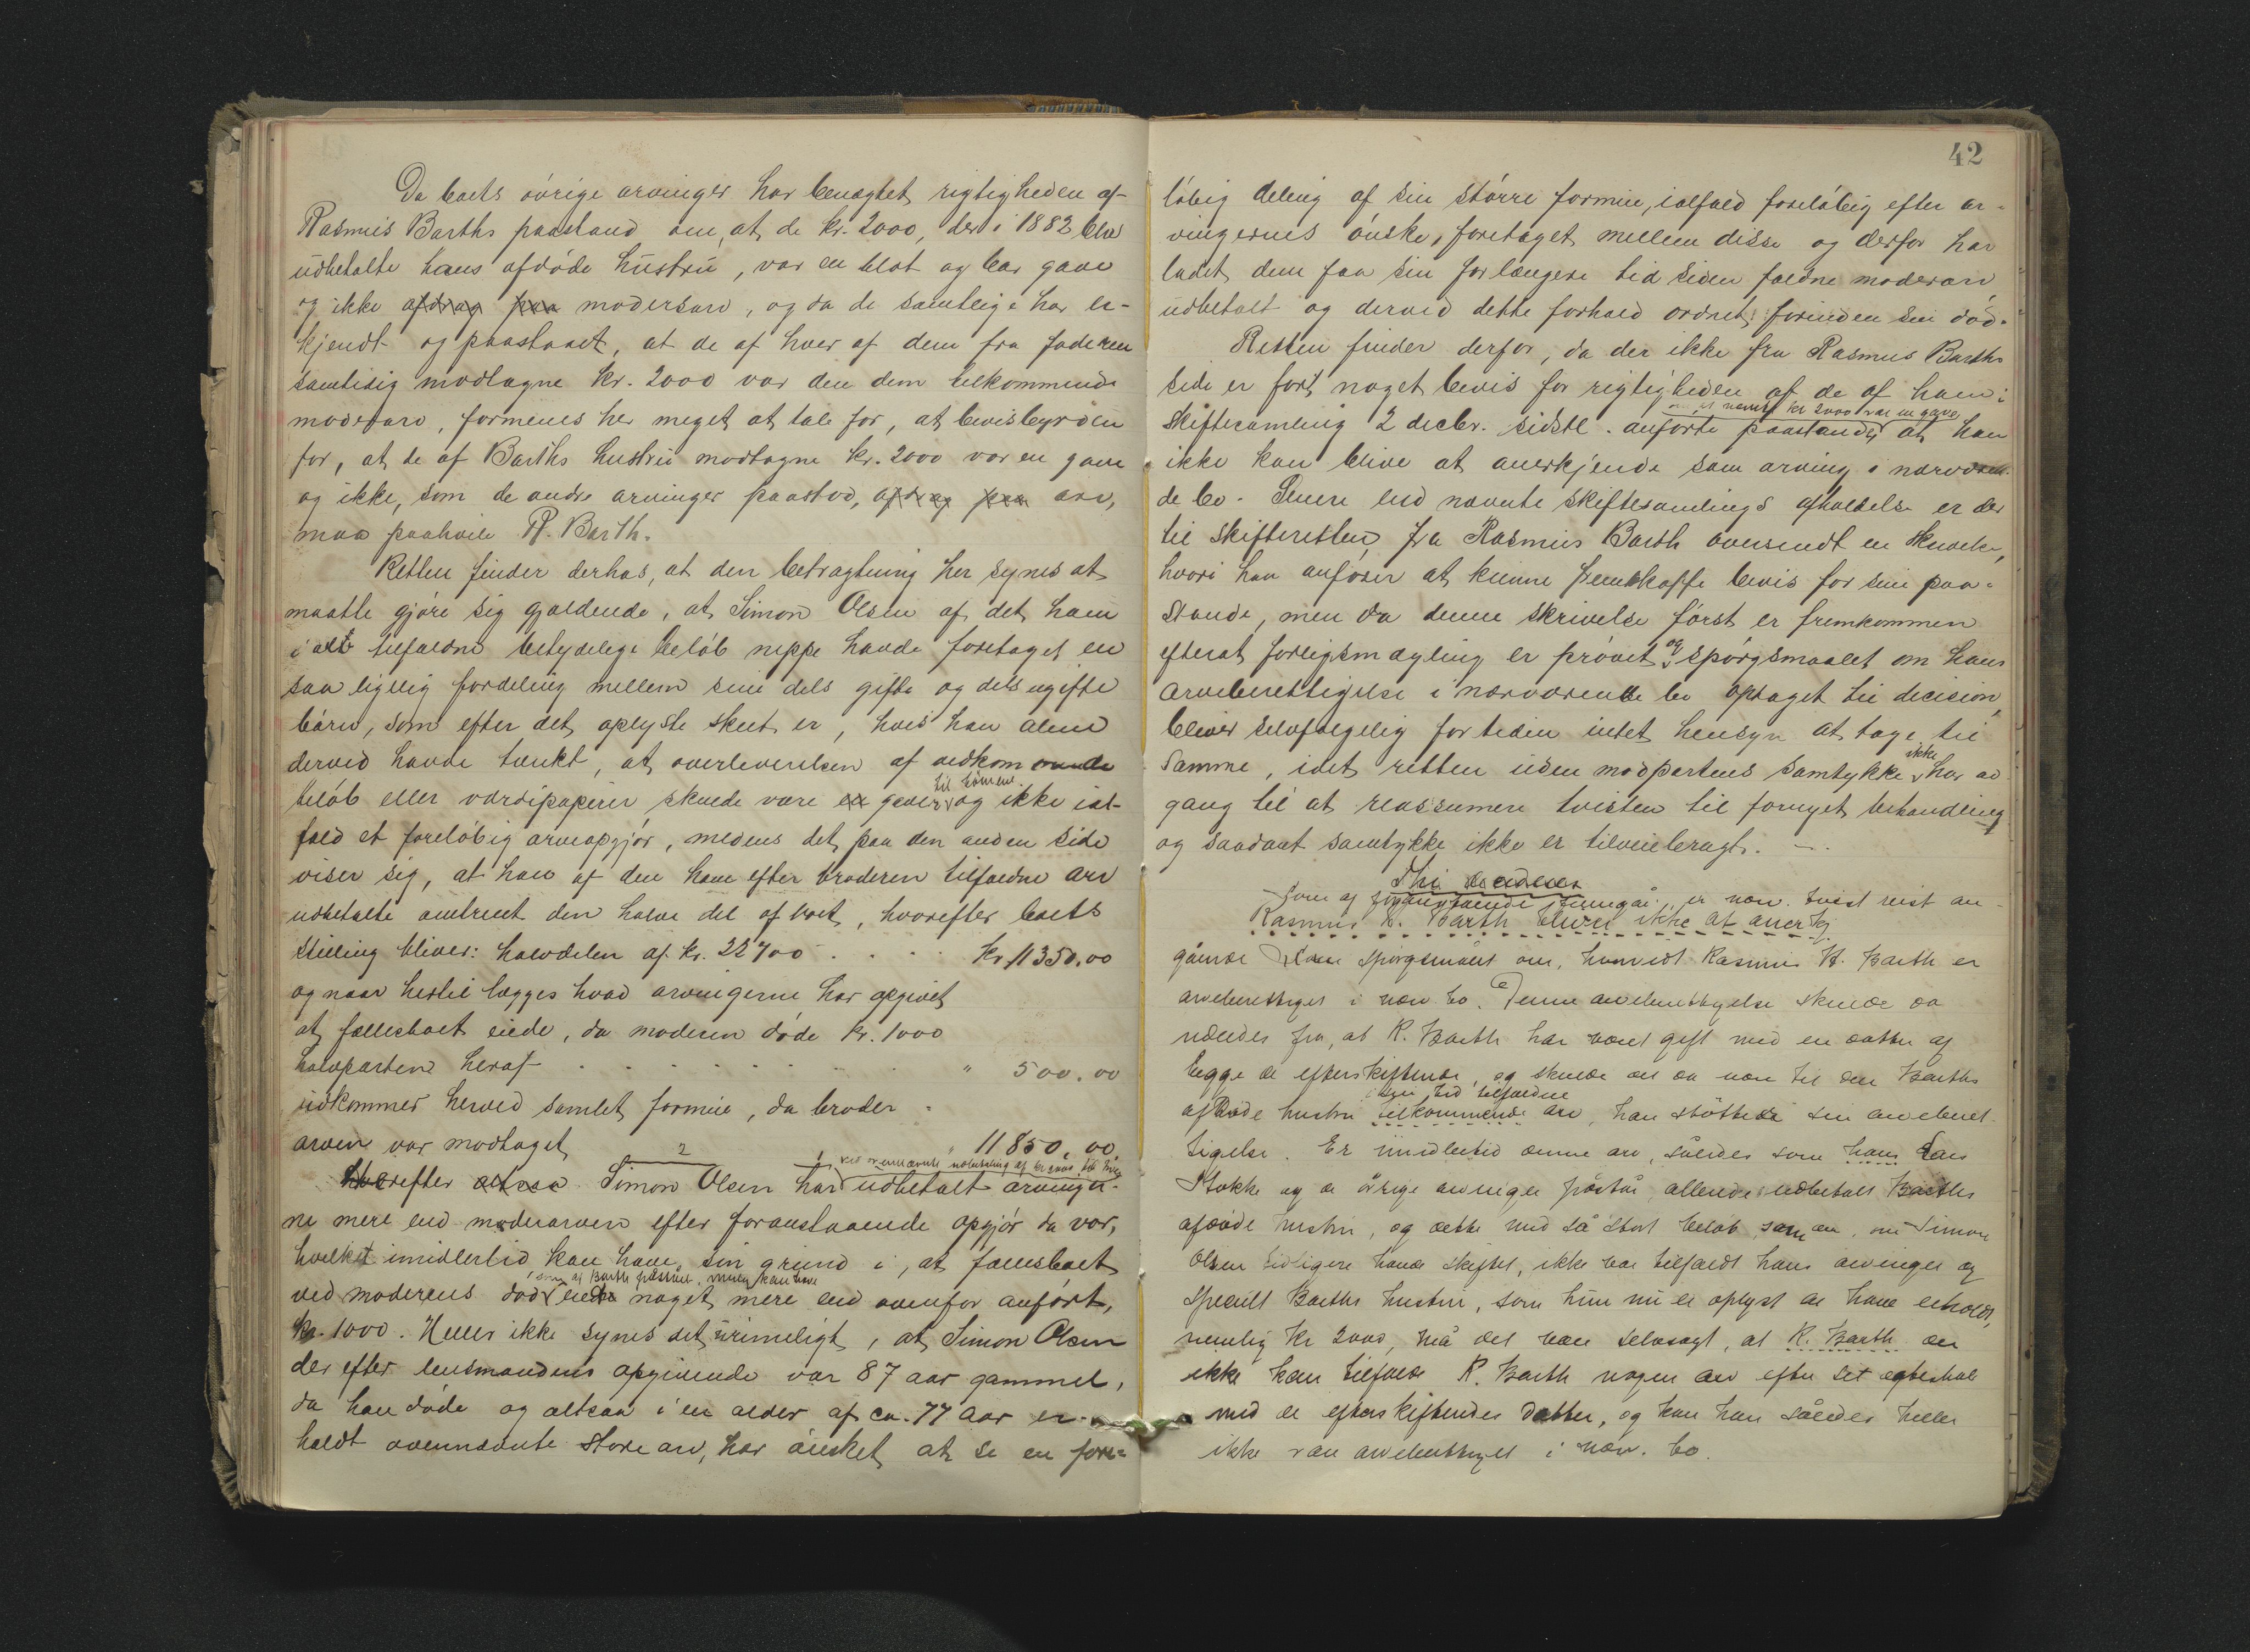 Da boets óvrige arvinger har benægtet rigtigheden af
Rasmus Barths paastand om, at de kr. 2000, der i 1882 blev
udbetalte hans afdóde hustru, var en blot og bar gave
og ikke afdrag paa modersarv, og da de samtlige har er-
kjendt og paastaaet, at de af hver af dem fra faderen
samtidig modtagne kr. 2000 var den dem tilkommende
modersarv, formenes her meget at tale for, at bevisbyrden
for, at de af Barths hustru modtagne kr. 2000 var en gave
og ikke, som de andre arvinger paastod, afdrag paa arv,
maa paahvile R. Barth.
Retten finder derhos, at den betragtning her synes at
maatte gjóre sig gjældende, at Simon Olsen af det ham
i alt tilfaldne betydelige belób neppe havde foretaget en
saa ligelig fordeling mellem sine dels gifte og dels ugifte
bórn, som efter det oplyste skeet er, hvis han alene
derved havde tænkt, at overleverelsen af vedkommende
til bórnene
belób eller værdipapirer skulde være en gaver og ikke ial-
fald et foreløbig arveopgjór, medens det paa den anden side
viser sig, at han af den ham efter broderen tilfaldne arv
udbetalte omtrent den halve del af boet, hvorefter boets
stilling bliver: halvdelen af kr. 22700 . . . . kr. 11350.00
og naar hertil lægges hvad arvingerne har opgivet
at fællesboet eiede, da moderen dóde kr. 1000
halvparten heraf . . . . . . . " 500.00
udkommer herved samlet formue, da broder-
arven var modtaget " 11850,00.
2 1 ved ovennævnte udbetaling af kr 2000 til hver
Herefter altsaa Simon Olsen har udbetalt arvinger-
ne mere end moderarven efter foranstaaende opgjór da var,
hvilket imidlertid kan have sin grund i, at fællesboet
som af Barth påstået, mulig kan have
ved moderens dód eiede noget mere end ovenfor anfórt,
kr. 1000. Heller ikke synes det urimeligt, at Simon Olsen
der efter lensmandens opgivende var 87 aar gammel,
da han dóde og altsaa i en alder af ca. 77 aar er-
holdt ovennævnte store arv, har ónsket at se en fore-
42
lóbig deling af sin stórre formue, ialfald forelóbig efter ar-
vingernes ónske, foretaget mellem disse og derfor har
ladet dem faa sin for længere tid siden faldne moderarv
udbetalt og derved dette forhold ordnet forinden sin dód.
Retten finder derfor, da der ikke fra Rasmus Barths
side er fórt noget bevis for rigtigheden af de af ham i
om at nævnte kr 2000 var en gave
skiftesamling 2 decbr. sidstl. anfórte paastande, at han
ikke kan blive at anerkjende som arving i nærværen-
de bo. Senere end nævnte skiftesamlings afholdelse er der
til skifteretten fra Rasmus Barth oversendt en skrivelse,
hvori han anfórer at kunne fremskaffe bevis for sine paa-
stande, men da denne skrivelse fórst er fremkommen
efterat forligsmægling er próvet og spórgsmaalet om hans
arveberettigelse i nærværende bo optaget til decision,
bliver selvfólgelig for tiden intet hensyn at tage til
samme, idet retten uden modpartens samtykke ikke har ad-
gang til at reassumere tvisten til fornyet behandling
og saadant samtykke ikke er tilveiebragt. —
Thi eragtes
Som af foranstaaende fremgår, er nærv. tvist reist an-
Rasmus H. Barth bliver ikke at anerkj
gående spórgsmålet om, hvorvidt Rasmus H. Barth er
arveberettiget i nærv bo. Denne arveberettigelse skulde da
udledes fra, at R. Barth har været gift med en datter af
begge de efterskiftende, og skulde det da være til den Barths
i sin tid tilfaldne
afdøde hustru tilkommende arv, han støttede sin arveberet-
tigelse. Er imidlertid denne arv, således som hans Lars
Stokke og de óvrige arvinger påstår, allerede udbetalt Barths
afdóde hustru, og dette med så stort belób, som den, om Simon
Olsen tidligere havde skiftet, ikke var tilfaldt hans arvinger og
specielt Barths hustru, som hun nu er oplyst at have erholdt,
nemlig kr 2000, må det være selvsagt, at R. Barth der
ikke kan tilfalde R. Barth nogen arv efter sit egteskab
med de efterskiftendes datter, og kan han således heller
ikke være arveberettiget i nærv. bo.